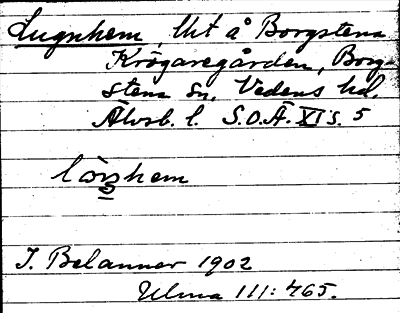 Lugnhem lht å Borgstena
Krögaregården, Borg-
stena sn, Vedens hd.
Älvsb. l. S.O.Ä. XI s. 5
hem
J. Belanner 1902
Ulma 111:465.